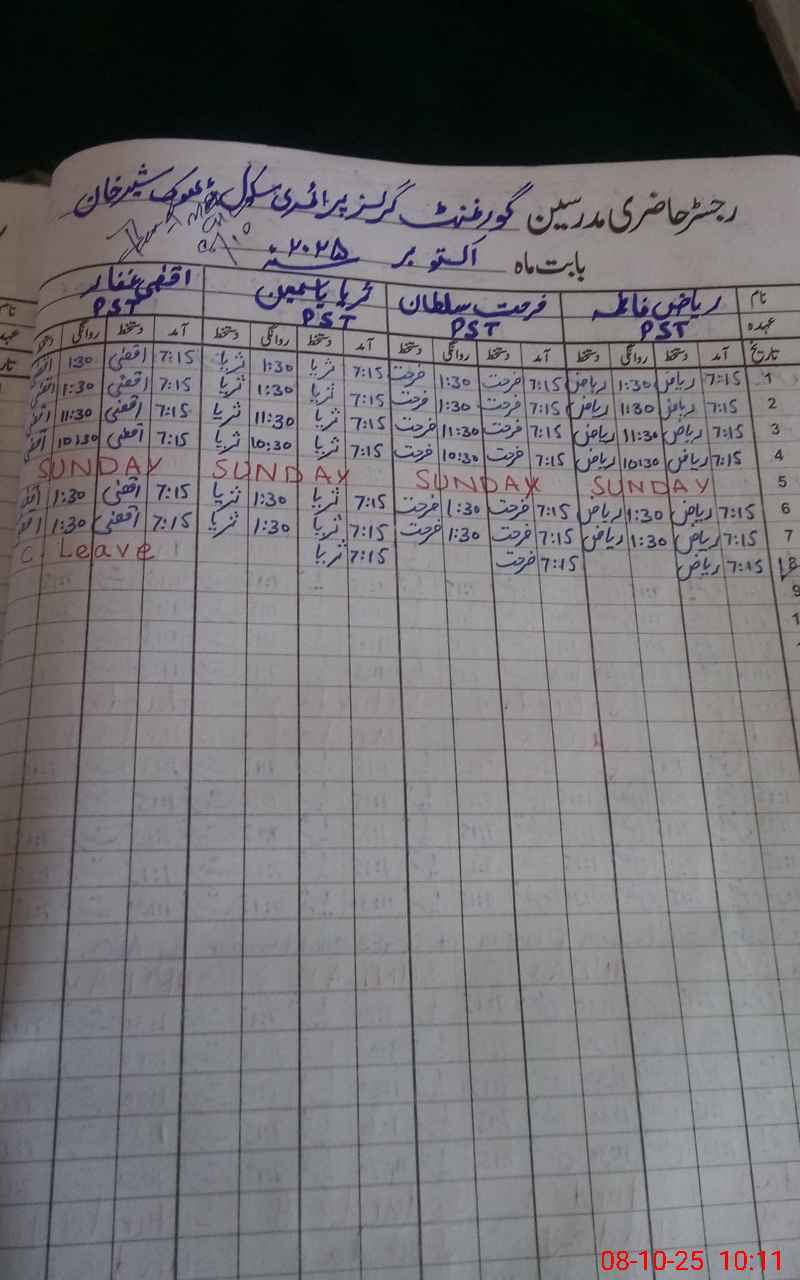 رجسٹر حاضری مدرسین گورنمنٹ گرلز پرائمری سکول ڈھوک شیر خان
بابت ماہ اکتوبر ۲۰۲۵
نام ریاض فاطمہ فرحت سلطان ثریا یاسمین اقصٰی غفار
عہدہ PST PST PST PST
تاریخ آمد دستخط روانگی دستخط آمد دستخط روانگی دستخط آمد دستخط روانگی دستخط آمد دستخط روانگی دستخط
1 7:15 ریاض 1:30 ریاض 7:15 فرحت 1:30 فرحت 7:15 ثریا 1:30 ثریا 7:15 اقصٰی 1:30
2 7:15 ریاض 1:30 ریاض 7:15 فرحت 1:30 فرحت 7:15 ثریا 1:30 ثریا 7:15 اقصٰی 1:30
3 7:15 ریاض 11:30 ریاض 7:15 فرحت 11:30 فرحت 7:15 ثریا 11:30 ثریا 7:15 اقصٰی 11:30
4 7:15 ریاض 10:30 ریاض 7:15 فرحت 10:30 فرحت 7:15 ثریا 10:30 ثریا 7:15 اقصٰی 10:30
5 SUNDAY SUNDAY SUNDAY SUNDAY
6 7:15 ریاض 1:30 ریاض 7:15 فرحت 1:30 فرحت 7:15 ثریا 1:30 ثریا 7:15 اقصٰی 1:30
7 7:15 ریاض 1:30 ریاض 7:15 فرحت 1:30 فرحت 7:15 ثریا 1:30 ثریا 7:15 اقصٰی 1:30
8 7:15 ریاض 7:15 فرحت 7:15 ثریا C. Leave
9
08-10-25 10:11